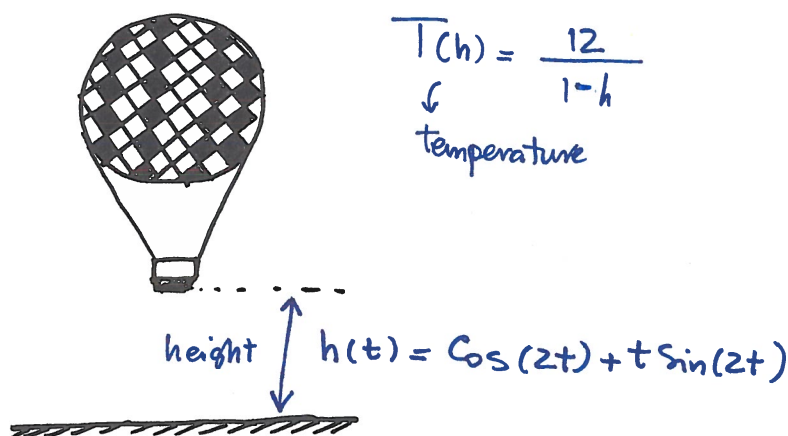 T(h) = 12/(1-h)
temperature
height h(t) = Cos(2t) + t Sin(2t)